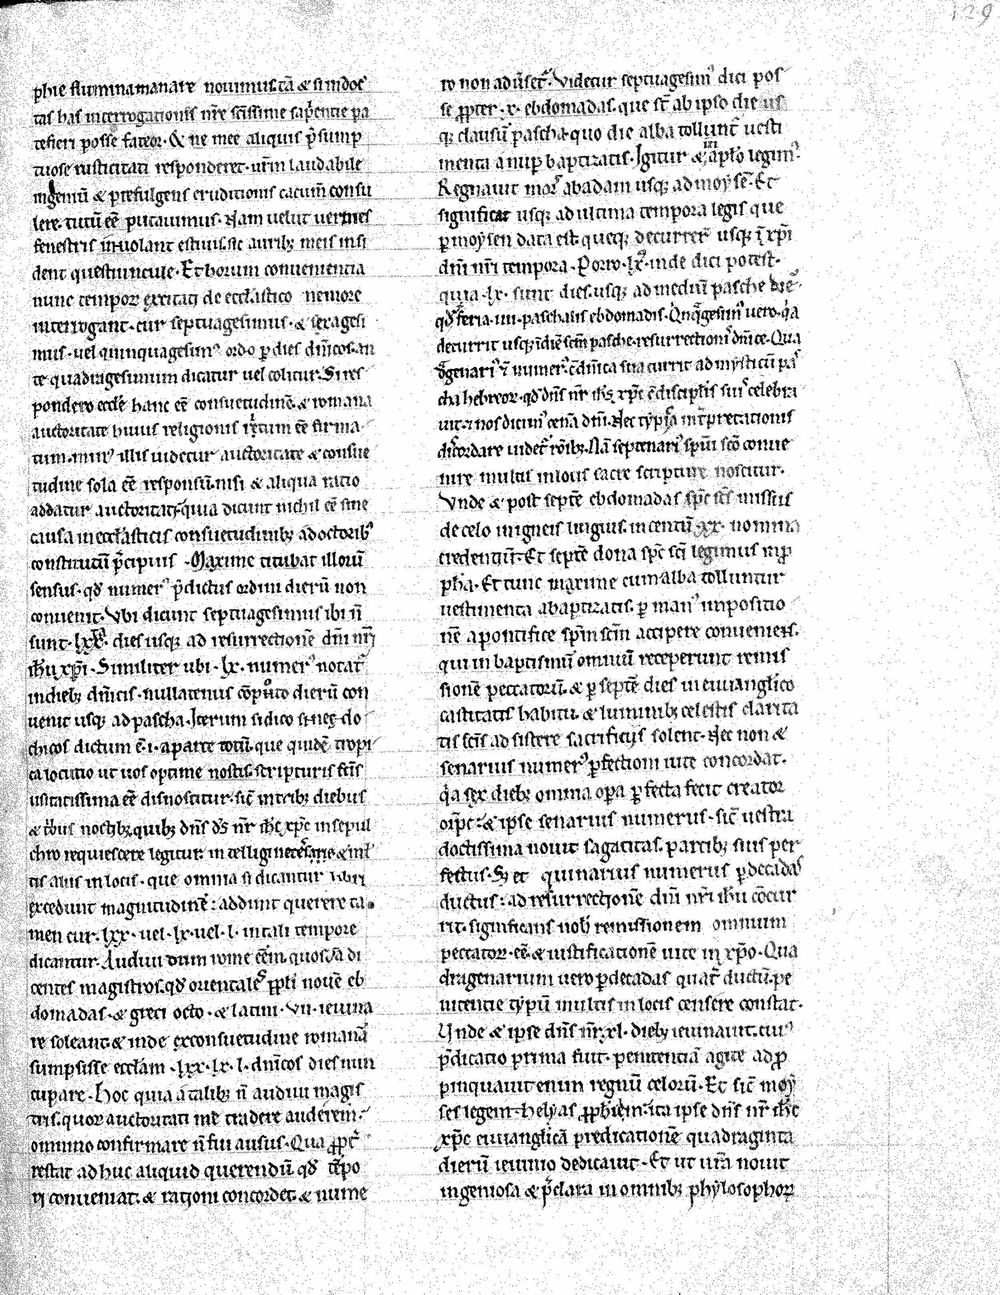 129
phie flumina manare novimus. tā & si indoc
tas has interrogationis nr̄e sc̄issime sapiētie pa
tefieri posse fateor. & ne mee aliquis p̄sump
tuose rusticitati responderet. ur̄m laudabile
ingeniū & prefulgens eruditionis cacum̄ consu
lere. tutū eē putauimus. Nam velut uermes
fenestris in volant estiuis. sic aurib; meis insi
dent questiuncule. Et horum conuenientia
nunc tempor̄ excitati de eccl̄astico nemore
interrogant. cur septuagesimus. & sexagesi
mus. vel quinquagesimꝰ ordo ꝑ dies dn̄icos. an
te quadragesimum dicatur uel colitur. Si res
pondero eccl̄e hanc eē consuetudinē. & romana
auctoritate huius religionis ritum eē firma
tum. animꝰ illis videtur auctoritate & consue
tudine sola eē responsū. nisi & aliqua ratio
addatur auctoritati. quia dicunt nichil eē sine
causa in eccl̄asticis consuetudinib; a doctorib;
constitutū p̄cipuis. Maxime titubat illorū
sensus. qd̄ numerꝰ p̄dictus ordini dierū non
conuenit. Vbi dicunt septuagesimus ibi n̄
sunt. lxx. dies usq; ad resurrectionē dn̄i nr̄i
ih̄u xp̄i. Similiter ubi. lx. numerꝰ notat̄
in dieb; dn̄icis. nullatenus cōputo dierū con
uenit usq; ad pascha. Iterum si dico sineg do
chicos dictum ē. i. a parte totū. que quidē tropi
ca locutio ut uos optime nostis. scripturis sc̄is
usitatissima eē dinoscitur. sic̄ in trib; diebus
& trib; noctib; quib; dn̄s d̄s nr̄ ih̄c xp̄c in sepul
chro requiescere legitur. in telligi necessarie. & ml̄
tis aliis in locis. que omnia si dicantur libri
excedunt magnitudinē: addunt querere ta
men cur. lxx. vel. lx. vel. l. in tali tempore
dicantur. Audiui dum rome eēm. quosdā di
centes magistros. qd̄ orientales ppl̄i nouē eb
domadas. & greci octo. & latini. vii. ieiuna
re soleant. & inde ex consuetudine romanā
sumpsisse eccl̄am. lxx. lx. l. dn̄icos dies nun
cupare. hoc quia a talib; n̄ audiui magis
tris. quor̄ auctoritati me tradere auderem.
omnino confirmare n̄ fui ausus. Qua ꝓpt̄
restat ad huc aliquid querendū qd̄ tēpo
ri conueniat. & rationi concordet. & nume
ro non aduset̄. Videtur septuagesimꝰ dici pos
se ꝓpter. x. ebdomadas. que st̄ ab ipso die us
q; clausū pascha. quo die alba tollunt̄ uesti
menta a nup̄ baptizatis. Igitur & in apl̄o legim̄.
Regnauit mors ab adam usq; ad moysē. Et
significat usq; ad ultima tempora legis que
ꝑ moysen data est. queq; decurrer̄ usq; ī xp̄i
dn̄i nr̄i tempora. Porro. lxꝰ. inde dici potest.
quia. lx. sunt dies. usq; ad mediū pasche diē.
qd̄ feria. iiii. paschalis ebdomadis. Qnq̄gesimꝰ vero. q̄a
decurrit usq; ī diē sc̄m pasche. resurrectionis dn̄ice. Qua
dgenariꝰ ī numer̄. ē dn̄ica sua currit ad mysticū pas
cha hebreor̄. qd̄ dn̄s nr̄ ih̄s xp̄c cū discipl̄is suis celebra
uit. & nos dicimꝰ cenā dn̄i. Nec typica int̄pretationis
discordare videt̄ rōib;. Nā septenariꝰ sp̄ui sc̄o conue
nire multis in locis sacre scripture noscitur.
Vnde & post septē ebdomadas sp̄c sc̄s missus
de celo in igneis linguis. in centū. xx. nomina
credentiū. Et septē dona sp̄c sc̄i legimus in ꝓ
pha. Et tunc maxime cum alba tolluntur
uestimenta a baptizatis. ꝑ manꝰ impositio
nē a pontifice sp̄m sc̄m accipere conueniens.
qui in baptismū omniū receperunt remis
sionē peccatorū. & ꝑ septē dies in euuanglico
castitatis habitu. & luminib; celestis clarita
tis sc̄is ad sistere sacrificiis solent. Nec non &
senarius numerꝰ ꝑfectioni uite concordat.
q̄a sex dieb; omnia oꝑa ꝑfecta fecit creator
oīpc̄: & ipse senarius numerus. sic̄ uestra
doctissima nouit sagacitas. partib; suis per
fectus. S; et quinarius numerus ꝑ decadas
ductus: ad resurrectionē dn̄i nr̄i ih̄u cōcur
rit. significans nob̄ remissionem omnium
peccator̄ eē. & iustificationē uite in xp̄o. Qua
dragenarium uero ꝑ decadas quat̄ ductū. pe
nitentie typū multis in locis censere constat.
Vnde & ipse dn̄s nr̄. xl. dieb; ieiunauit. cuiꝰ
p̄dicatio prima fuit. penitentiā agite ad ꝓ
pinquauit enim regnū celorū. Et sic̄ moy
ses legem. helyas ꝓphetiēm. ita ipse dn̄s nr̄ ih̄c
xp̄c euuanglicā predicationē quadraginta
dierū ieiunio dedicauit. Et ut ur̄a nouit
ingeniosa & p̄clara in omnib; phylosophor̄